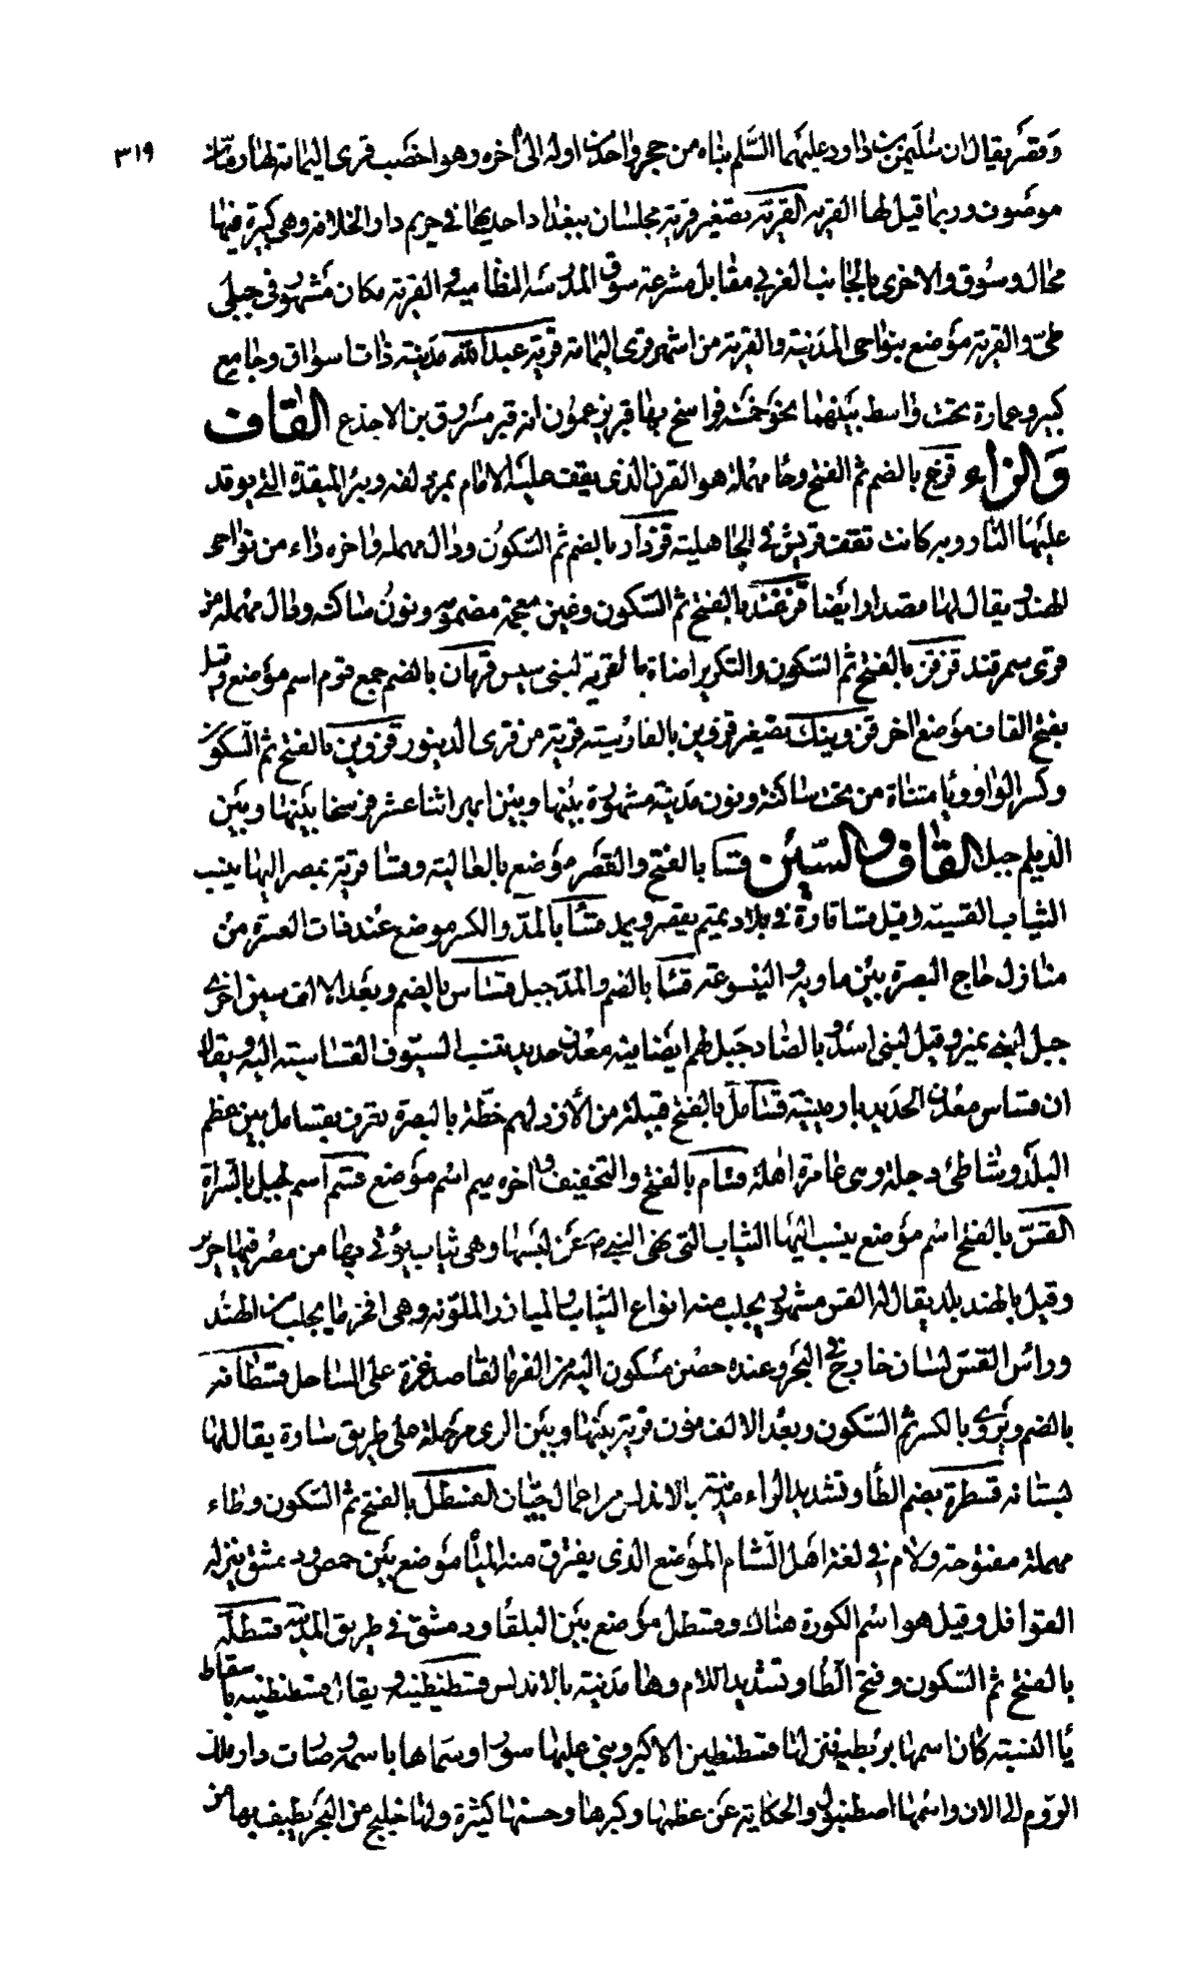 ٣١٩
وقصر يقال ان سليمن بن داود عليهما السلم بناه من حجر واحد من اوله الى اخره وهو اخصب قرى اليمامة لها رمان
موصوف وربما قيل لها القرية القرية تصغير قرية مجلسان ببغداد احديهما في حريم دار الخلافة وهي كبيرة فيها
محال وسوق والاخرى بالجانب الغربي مقابل مشرعة سوق المدرسة النظامية والقرية مكان مشهور في جبلي
طيّ والقرية موضع بنواحي المدينة والقرية من اشهر قرى اليمامة قرية عبد الله مدينة ذات اسواق وجامع
كبير وعمارة تحت واسط بينهما نحو خمسة فراسخ بها قبر يزعمون انه قبر مسروق بن الاجدع القاف
والزاء قزح بالضم ثم الفتح وحا مهملة هو القرن الذي يقف عليه الامام بمزدلفه وبئر الميقدة التي يوقد
عليها النار وبه كانت تقف قريش في الجاهلية قزدار بالضم ثم السكون ودال مهمله واخره راء من نواحي
الهند ويقال لها قصدار ايضا قزغند بالفتح ثم السكون وغين معجمة مضمومه ونون ساكنه ودال مهملة من
قرى سمرقند قزقز بالفتح ثم السكون والتكرير اضاة بالقرية لبني سيس قزمان بالضم جمع قزم اسم موضع وقيل
بفتح القاف موضع اخر قزوينك تصغير قزوين بالفارسيته قرية من قرى الدينور قزوين بالفتح ثم السكون
وكسر الواو ويا مثناة من تحت ساكنة ونون مدينة مشهورة بينها وبين ابهر اثنا عشر فرسخا بينها وبين
الديلم جبل القاف والسين قسا بالفتح والقصر موضع بالعالية وقسا قرية بمصر اليها ينسب
الثياب القسية وقيل قسا قارة في بلاد تميم يقصر ويمد قساً بالمد والكسر موضع عند ذات العشيرة من
منازل حاج البصرة بين ماوية والينسوعة قساً بالضم والمد جبل قساس بالضم وبعد الالف سين اخرى
جبل لبني نمير وقيل لبني اسد وبالصاد جبل لهم ايضا فيه معدن حديد ينسب السيوف القساسية اليه ويقال
ان قساس معدن الحديد بارمينية قسامل بالفتح قبيلة من الأزد لهم خطّة بالبصرة تعرف بقسامل بين عظم
البلد وشاطئ دجلة وهي عامرة اهلة قسام بالفتح والتخفيف واخره ميم اسم موضع قسم اسم لجبل بالسراة
القسّ بالفتح اسم موضع ينسب اليها الثياب التي نهى النبي ص عن لبسها وهي ثياب يؤتى بها من مصر فيها حرير
وقيل بالهند بلد يقال له القس مشهور يجلب منه انواع الثياب والميازر الملونه وهي افخر ما يجلب من الهند
وراس القسّ لسان خارج في البحر وعنده حصن مسكون اليه من الفرما لقاصد غزة على الساحل قسطانه
بالضم ويروى بالكسر ثم السكون وبعد الالف نون قرية بينها وبين الري مرحلة على طريق ساوة يقال لها
بستانه قسطرة بضم الطا وتشديد الراء مدينة بالاندلس من اعمال جيّان القسطل بالفتح ثم السكون وطاء
مهملة مفتوحة ولام في لغة اهل الشام الموضع الذي يفترق منه الميا موضع بين حمص ودمشق ينزله
القوافل وقيل هو اسم الكورة هناك وقسطل موضع بين البلقا ودمشق في طريق المدينة قسطلة
بالفتح ثم السكون وفتح الطا وتشديد اللام وها مدينة بالاندلس قسطنطينيه ويقال قسطنطينه باسقاط
يا النسبته كان اسمها بزنطيه فنزلها قسطنطين الاكبر وبنى عليها سورا وسماها باسمه وصارت دار ملك
الروم الى الان واسمها اصطنبول والحكاية عن عظمها وكبرها وحسنها كثيرة ولها خليج من البحر يطيف بها من